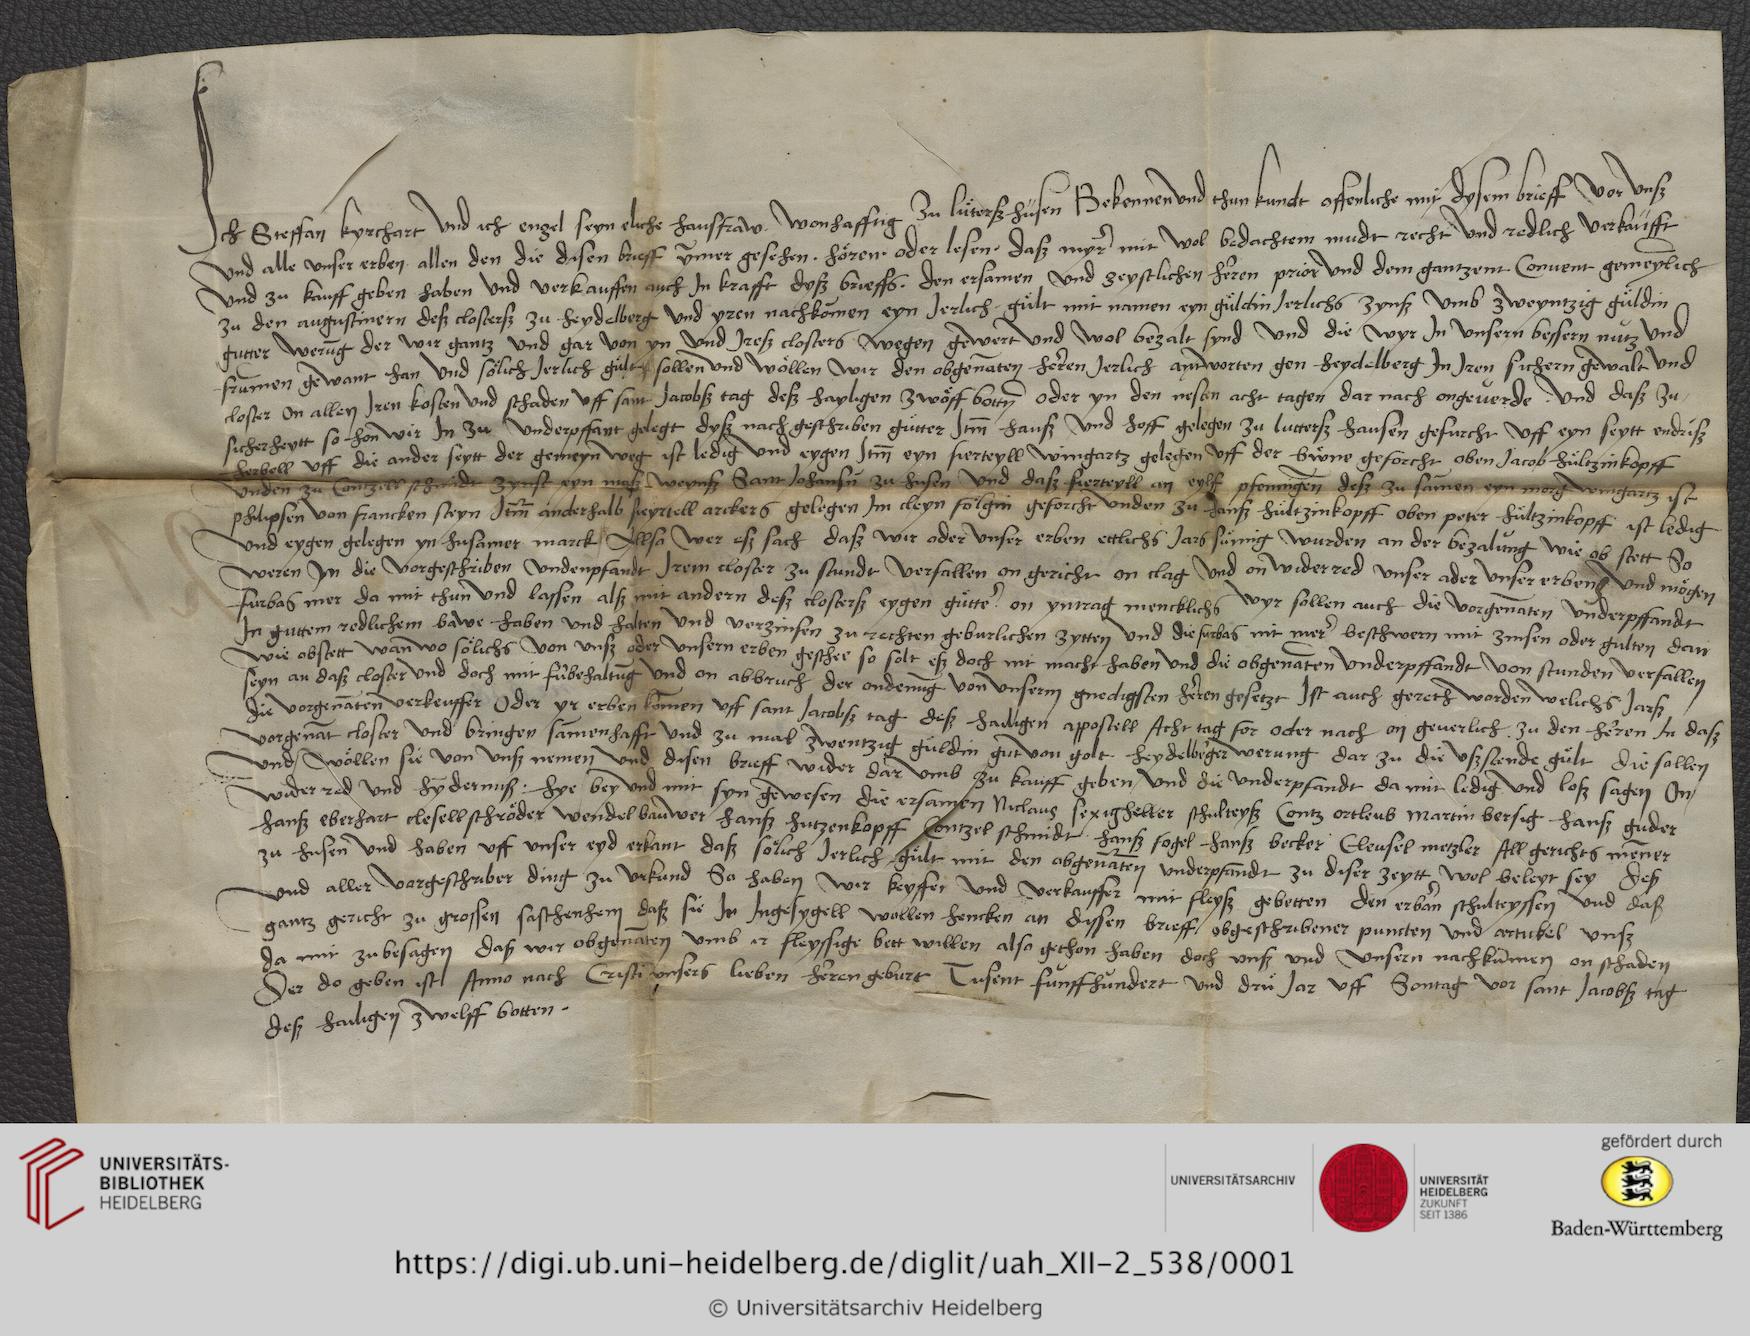 Ich Steffan kyrchart Vnd ich engel seyn eliche hausfraw wonhafftig Zu lüterß hüsen Bekennen vnd thun kundt offenliche mit dysem brieff Vor Vnß
Vnd alle vnser erben allen den die disen brieff ymer gesehen hören oder lesen daß myr mit wol bedachtem mudt recht Vnd redlich Verkaüfft
Vnd zu kauff geben haben Vnd verkauffen auch In krafft dyß brieffs den ersamen Vnd geystlichen heren prior Vnd dem gantzent Convent gemeynlich
zu den augustinern deß closterß zu heydelberg Vnd yren nachkomen eyn Jerlich gült mit namen eyn güldin Jerlichs zynß Vmb zweyntzig güldin
gutter werung der wir gantz Vnd gar von yn Vnd Jreß closters wegen gewert Vnd wol bezalt synd Vnd die wyr In vnsern bessern nutz Vnd
frumen gewant han Vnd sölich Jerlich gült sollen Vnd wöllen wir den obgenaten heren Jerlich antworten gen heydelberg In Jren sichern gewalt Vnd
closter on allen Jren kosten Vnd schaden Vff sant Jacobß tag deß hayligen zwölff botten oder yn den nesten acht tagen dar nach ongeuerde Vnd daß zu
sicherheytt so hon wir In zu Vnderpffant gelegt dyß nach geschriben gütter Itm hauß Vnd hoff gelegen zu lutterß hausen gefurcht Vff eyn seytt endriß
herbell Vff die ander seytt der gemeyn weg ist ledig Vnd eygen Itm eyn fierteyll wingartz gelegen Vff der büwne geforcht oben Jacob hültzinkopff
Vnden zu Contzell schmidt zynst eyn maß weynß Sant Johansen zu husen Vnd daß fierteyll an eylf pfenningen deß zu samen eyn morg wingartz ist
philipsen von francken steyn Itm anderhalb fieyrtell arckers gelegen Im cleyn sölgin geforcht Vnden zu hanß hültzinkopff oben peter hültzinkopff ist ledig
Vnd eygen gelegen yn husamer marck Allso wer eß sach daß wir oder Vnser erben ettlichs Jars sümig wurden an der bezalung wie ob stett So
weren Jn die vorgeschriben Vndenpfandt Jrem closter zu stundt verfallen on gericht on clag Vnd on widerred Vnser ader Vnser erben Vnd mögen
furbas mer da mit thun Vnd lassen alß mit andern deß closterß eygen gütter on yntrag mencklichs wyr sollen auch die vorgenaten Vnderpffandt
In guttem redlichem bawe haben Vnd halten Vnd verzinsen zu rechten geburlichen zytten Vnd die furbas nit mer beschwern mit zinsen oder gulten dan
wie obstett wan wo sölichs von Vnß oder Vnsern erben geschee so solt eß doch nit macht haben Vnd die obgenaten Vnderpffandt von stunden verfallen
seyn an daß closter Vnd doch mit fürbehaltung Vnd on abbruch der ordenung von Vnserm gnedigsten heren gesetzt Ist auch gereth worden welichs Jarß
die vorgenaten verkeuffer Oder yr erben komen Vff sant Jacobß tag deß hailigen apostell Acht tag for oder nach on geuerlich zu den heren In daß
vorgenat closter Vnd bringen samenhafft Vnd zu mal zwentzig güldin gut von golt heydelberger werung dar zu die Vßstende gült die sollen
Vnd wöllen sie von Vnß nemen Vnd disen brieff wider dar Vmb zu kauff geben Vnd die Vnderpfandt da mit ledig Vnd loß sagen On
wider red Vnd hyndernuß Hye bey Vnd mit syn gewesen die ersamen Niclaus schulteyß Contz ortleub Martin bersig hanß guder
hanß eberhart clesell schröder wendel bauwer hanß hutzenkopff Contzel schmidt hanß fogel hanß becker Cleusel metzler All gerichts mener
zu husen Vnd haben Vff Vnser eyd erkant daß sölich Jerlich gült mit den obgenaten Vnderpfandt zu diser zeytt wol beleyt sey Deß
Vnd aller vorgeschriber ding zu Vrkund So haben wir keyffer Vnd verkauffer mit fleyß gebetten den erbarn schulteyssen Vnd daß
gantz gericht zu grossen sachsenhem daß sie Ir Ingesygell wollen hencken an dyssen brieff obgeschribener puncten Vnd artickel Vnß
da mit zu besagen daß wir obgenaten Vmb ir fleyssige bett willen also gethon haben doch Vnß Vnd Vnsern nachkumen on schaden
Der do geben ist Anno nach Cristi Vnsers lieben heren geburt Tusent fünffhündert Vnd drü Jar Vff Sontag Vor sant Jacobß tag
deß hailigen zwelff botten
UNIVERSITÄTS-
BIBLIOTHEK
HEIDELBERG
UNIVERSITÄTSARCHIV
UNIVERSITÄT
HEIDELBERG
ZUKUNFT
SEIT 1386
gefördert durch
Baden-Württemberg
https://digi.ub.uni-heidelberg.de/diglit/uah_XII-2_538/0001
© Universitätsarchiv Heidelberg